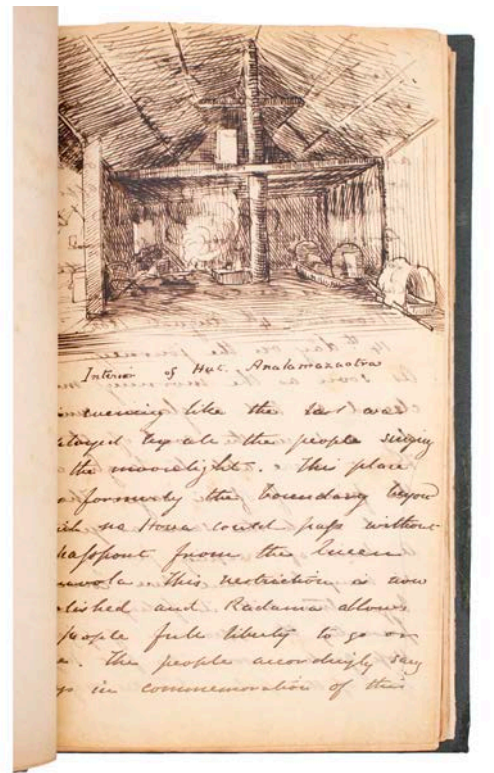 Interior of Hut. Analamazaotra
evening like the last was
up at the people singing
the moonlight. This place
formerly the boundary beyon
no Hova could pass without
passport from the Queen
This restriction is now
lished and Radama allows
people full liberty to go or
The people accordingly say
in commemoration of this